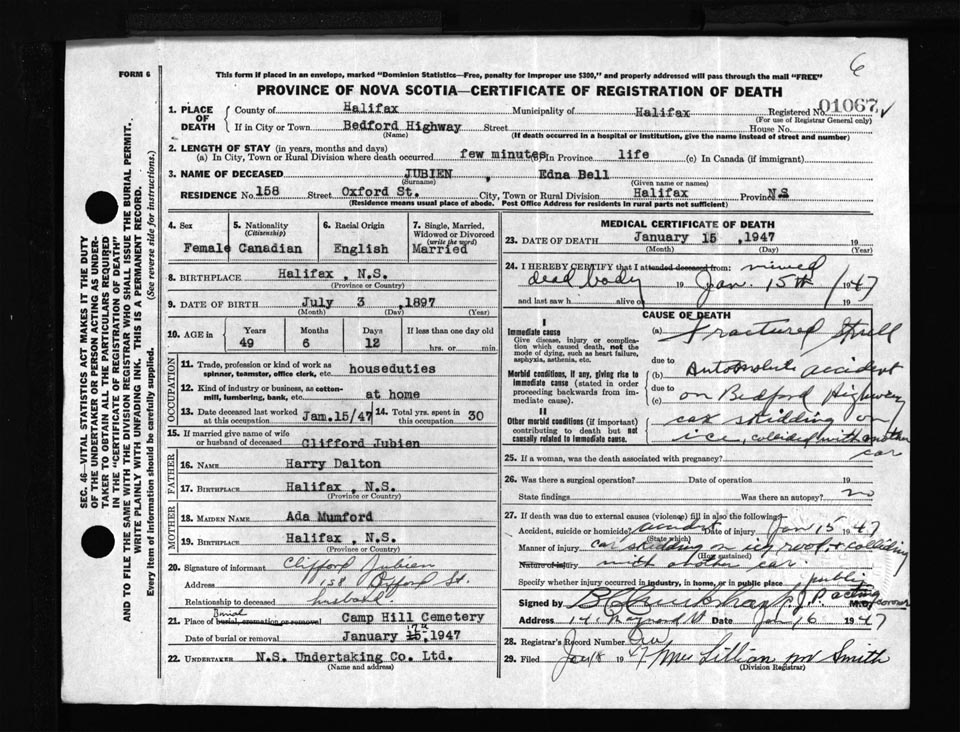 6
FORM 6
This form if placed in an envelope, marked "Dominion Statistics—Free, penalty for improper use $300," and properly addressed will pass through the mail "FREE"
PROVINCE OF NOVA SCOTIA—CERTIFICATE OF REGISTRATION OF DEATH
SEC. 46—VITAL STATISTICS ACT MAKES IT THE DUTY
OF THE UNDERTAKER OR PERSON ACTING AS UNDER-
TAKER TO OBTAIN ALL THE PARTICULARS REQUIRED
IN THE "CERTIFICATE OF REGISTRATION OF DEATH"
AND TO FILE THE SAME WITH THE DIVISION REGISTRAR WHO SHALL ISSUE THE BURIAL PERMIT.
WRITE PLAINLY WITH UNFADING INK. THIS IS A PERMANENT RECORD.
Every item of information should be carefully supplied. (See reverse side for instructions.)
1. PLACE OF DEATH County of Halifax Municipality of Halifax Registered No. 01067
(For use of Registrar General only)
If in City or Town Bedford Highway Street House No.
(Name) (If death occurred in a hospital or institution, give the name instead of street and number)
2. LENGTH OF STAY (in years, months and days)
(a) In City, Town or Rural Division where death occurred few minutes (b) In Province life (c) In Canada (if immigrant)
3. NAME OF DECEASED JUBIEN , Edna Bell
(Surname) (Given name or names)
RESIDENCE No. 158 Street Oxford St. City, Town or Rural Division Halifax Province NS
(Residence means usual place of abode. Post Office Address for residents in rural parts not sufficient)
4. Sex 5. Nationality (Citizenship) 6. Racial Origin 7. Single, Married, Widowed or Divorced (write the word)
Female Canadian English Married
8. BIRTHPLACE Halifax , N.S.
(Province or Country)
9. DATE OF BIRTH July 3 ,1897
(Month) (Day) (Year)
10. AGE in Years Months Days If less than one day old
49 6 12 hrs. or min.
OCCUPATION
11. Trade, profession or kind of work as
spinner, teamster, office clerk, etc. houseduties
12. Kind of industry or business, as cotton-
mill, lumbering, bank, etc. at home
13. Date deceased last worked at this occupation Jan.15/47 14. Total yrs. spent in this occupation 30
15. If married give name of wife
or husband of deceased Clifford Jubien
FATHER
16. NAME Harry Dalton
17. BIRTHPLACE Halifax , N.S.
(Province or Country)
MOTHER
18. MAIDEN NAME Ada Mumford
19. BIRTHPLACE Halifax , N.S.
(Province or Country)
20. Signature of informant Clifford Jubien
Address 158 Oxford St.
Relationship to deceased husband
21. Place of Burial burial, cremation or removal Camp Hill Cemetery
Date of burial or removal January 15 17th,1947
22. UNDERTAKER N.S. Undertaking Co. Ltd.
(Name and address)
MEDICAL CERTIFICATE OF DEATH
23. DATE OF DEATH January 15 ,1947 19
(Month) (Day) (Year)
24. I HEREBY CERTIFY that I attended deceased from: viewed
dead body 19 Jan. 15th / 1947
and last saw h alive on 19
CAUSE OF DEATH
I
Immediate cause
Give disease, injury or complica-
tion which caused death, not the
mode of dying, such as heart failure,
asphyxia, asthenia, etc.
(a) Fractured Skull
due to
Morbid conditions, if any, giving rise to
immediate cause (stated in order
proceeding backwards from im-
mediate cause).
(b) Automobile accident
due to
(c) on Bedford Highway
II
Other morbid conditions (if important)
contributing to death but not
causally related to immediate cause.
car skidding on
ice, collided with another
car
25. If a woman, was the death associated with pregnancy?
26. Was there a surgical operation? Date of operation 19
State findings Was there an autopsy? no
27. If death was due to external causes (violence) fill in also the following:
Accident, suicide or homicide? accident Date of injury Jan 15 1947
(State which)
Manner of injury car skidding on icy road & colliding
(How sustained)
Nature of injury with another car.
Specify whether injury occurred in industry, in home, or in public place public
Signed by M.D. acting coroner
Address Date Jan 16 1947
28. Registrar's Record Number
29. Filed Jan 18 1947 Mrs Lillian M Smith
(Division Registrar)